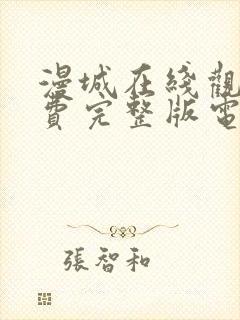 漫城在綫觀
費完整版電
張智和